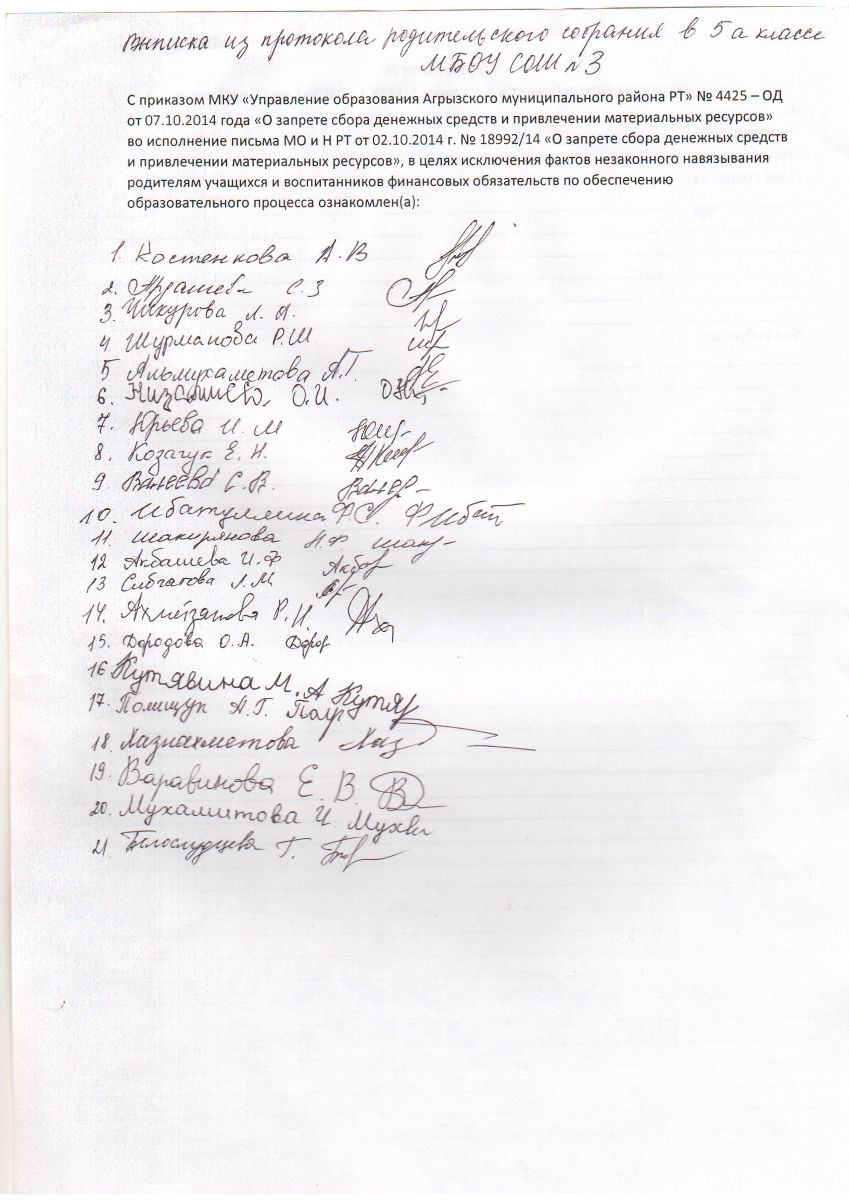 Выписка из протокола родительского собрания в 5а классе
МБОУ СОШ №3
С приказом МКУ «Управление образования Агрызского муниципального района РТ» № 4425 – ОД
от 07.10.2014 года «О запрете сбора денежных средств и привлечении материальных ресурсов»
во исполнение письма МО и Н РТ от 02.10.2014 г. № 18992/14 «О запрете сбора денежных средств
и привлечении материальных ресурсов», в целях исключения фактов незаконного навязывания
родителям учащихся и воспитанников финансовых обязательств по обеспечению
образовательного процесса ознакомлен(а):
1. Костенкова А.В
2. Ардашева С.З
3. Чикурова Л.А.
4. Шурманова Р.Ш
5 Альмухаметова А.Г.
6. О.И.
7. Юрьева И.М
8. Козачук Е.Н.
9. Валеева С.В.
10. Ибатуллина Р.С.
11. Шакирянова Н.Ф. Шаку
12 Акбашева И.Ф Акбаш
13 Сибгатова Л.М.
14. Ахметзянова Р.Н.
15. Дородова О.А. Дород
16 Кутявина М.А Кутяв
17. Полищук Н.Г.
18. Хазиахметова Хаз
19. Варавинова Е.В.
20. Мухамитова И.
21 Белослудцева Г.